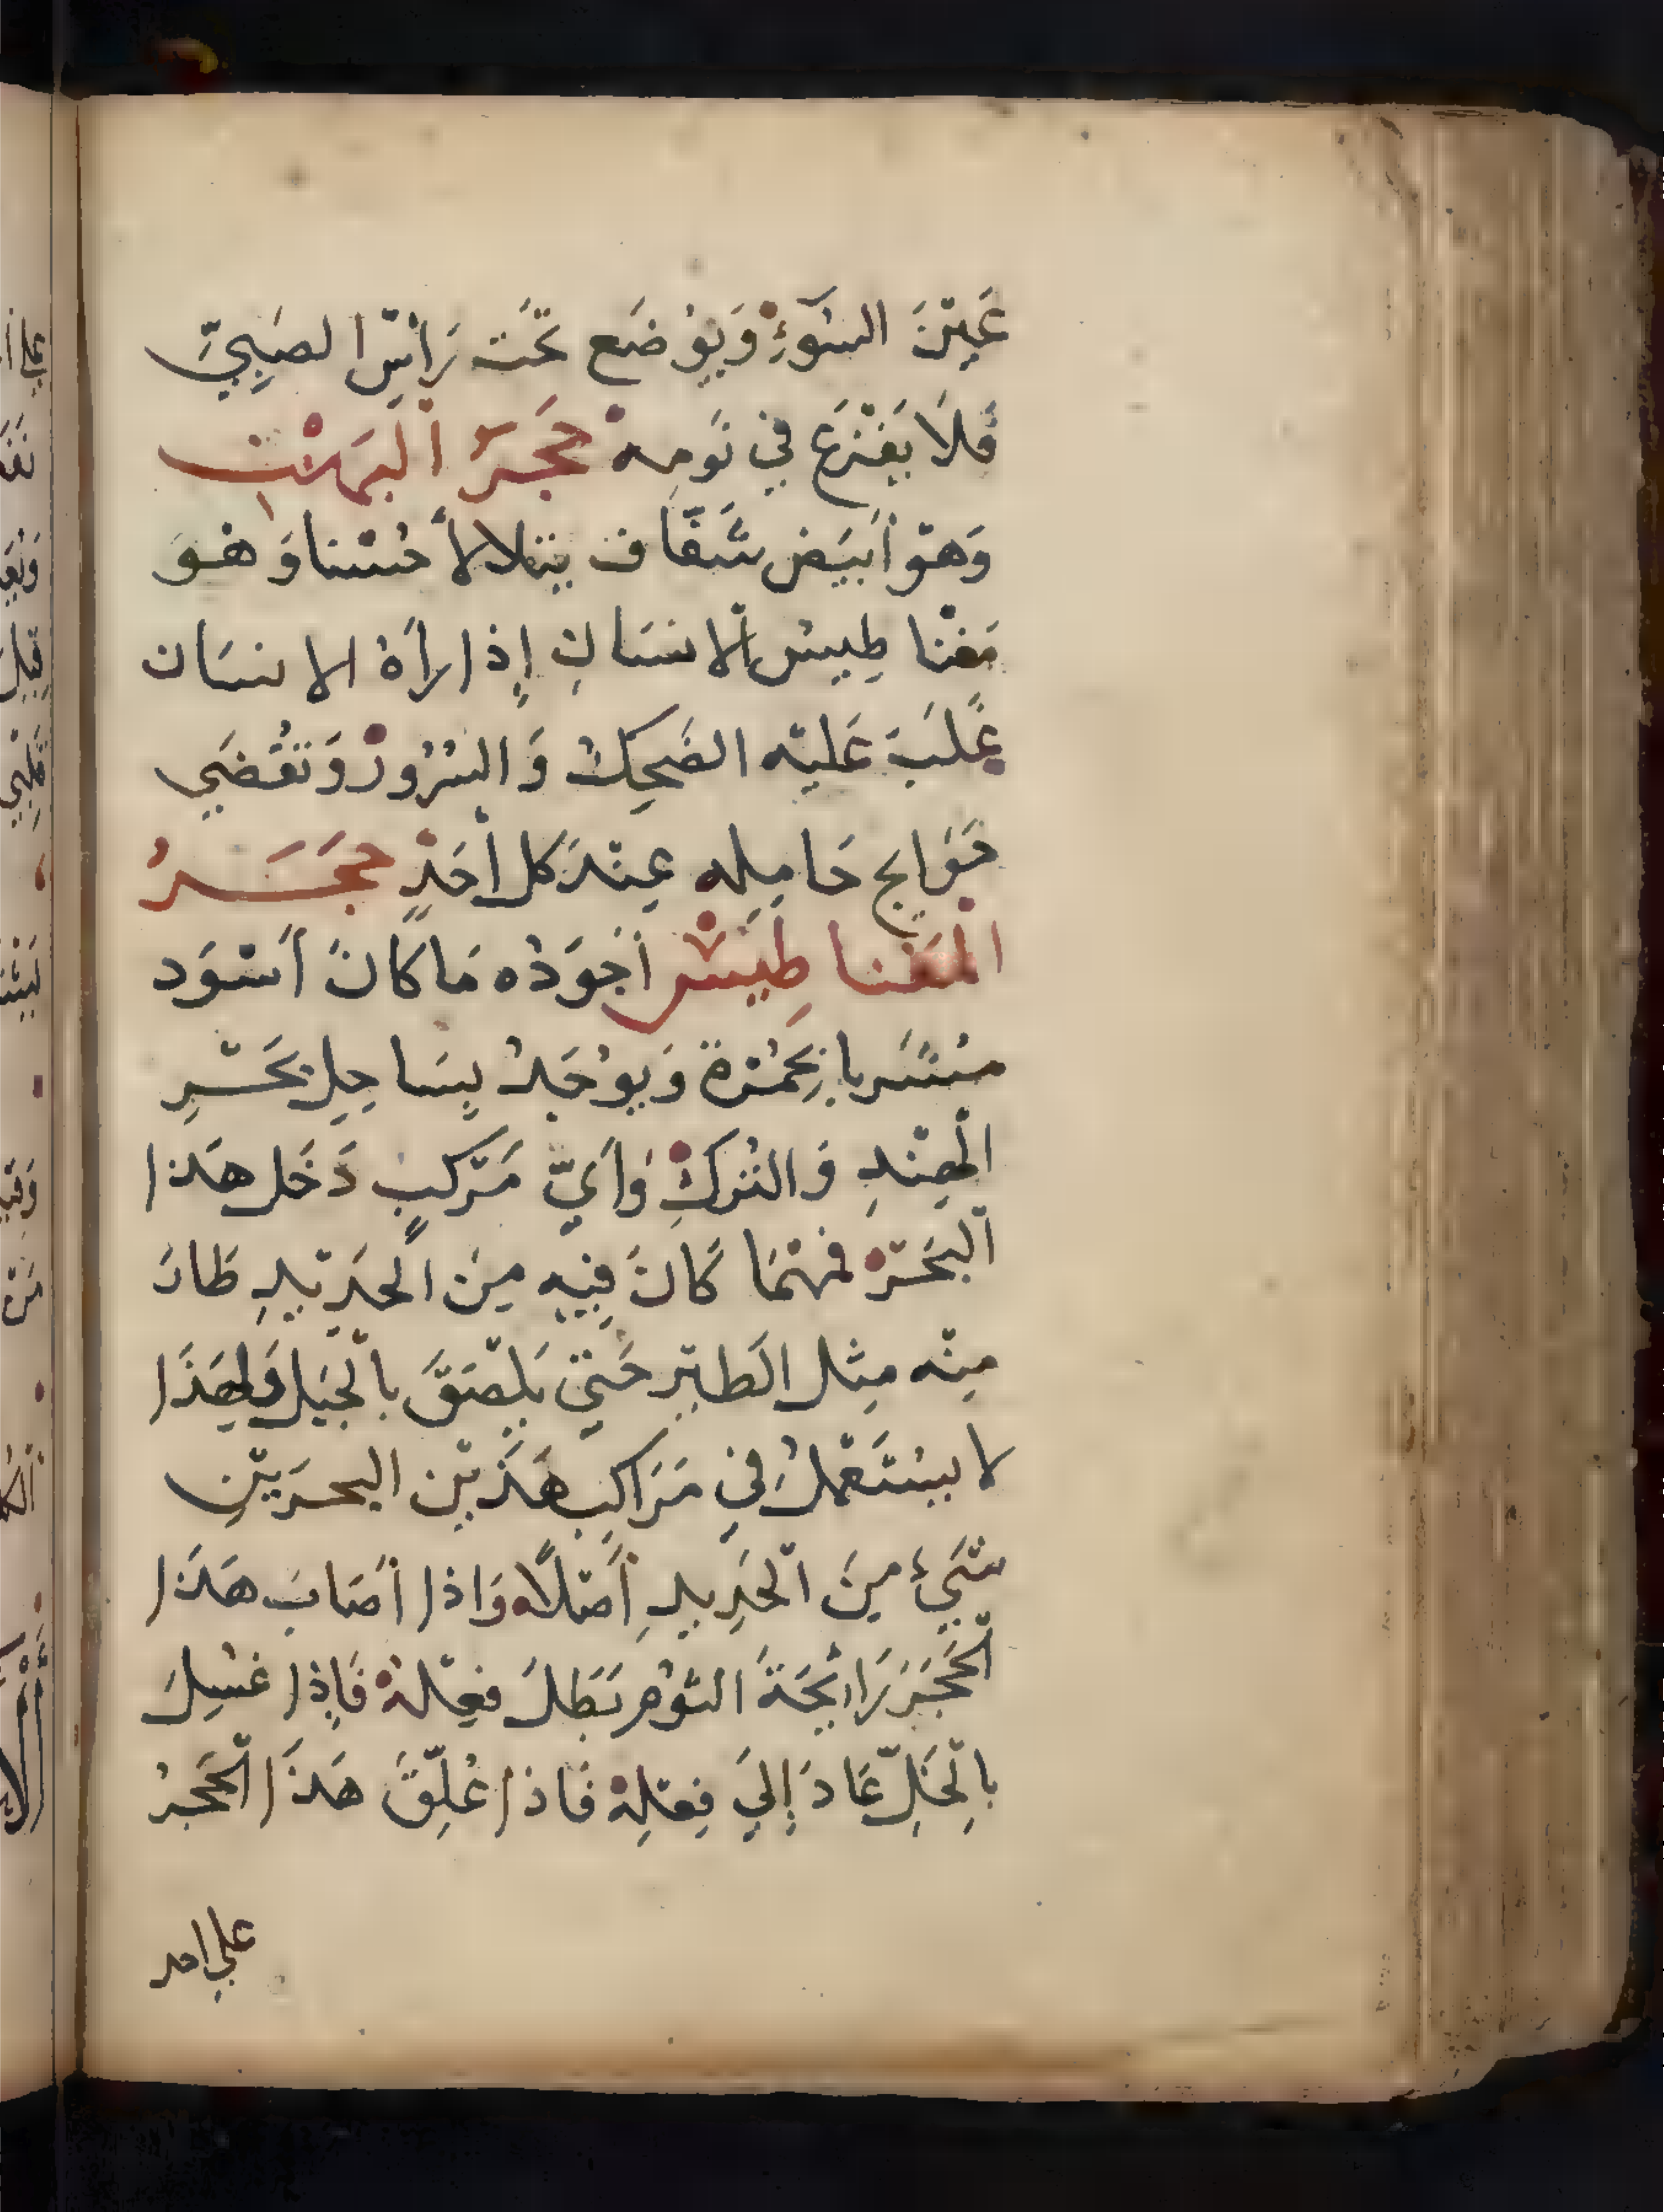 عَيْنَ السُّوءِ وَيُوضَع تَحْت رَأْسِ الصَبِيِّ
فَلَا يَفْزَع فِي نَومِه حَجَرُ الْبَهْتِ
وَهوَ أَبيَض شَفَّاف يتلالأ حُسْنا وَهُوَ
مَغْنا طِيسُ الْانسَانِ إِذا رآهُ الانسَان
غَلَبَ عَلَيْه الضَحِكُ وَالسُرُورْ وَتَقْضَي
حَوَايج حَامِلِه عِنْدَ كل أحَدٍ حجَـَـرُ
المَغْنا طِيسْ أَجْوَدُه مَا كانَ أَسْوَد
مُتَسَربا بِحُمْرَة وَيوُجَدُ بِسَاحِل بَحْـرِ
الْهِنْدِ وَالتُرْكِ وَأَيّ مَرْكبٍ دَخَل هَذا
البَحْرَ فَمَهْمَا كَانَ فِيِه مِنَ الحَدِيْدِ طَارَ
مِنْه مِثل الَطيْرِ حَتَّي يَلْصَقَ بالْجَبَل وَلِهَذَا
لا يسْتَعْمَلُ فِي مَرَاكِبِ هَذَيْن البحرَيْنِ
شَيْءِ مِنَ الْحَدِيدِ أَصْلًا وَاذا أصَابَ هَذَا
الْحَجَرَ رَائِحَةَ الثوُم بَطَلَ فِعْلهُ فَإِذا غسِلَ
بالِخَلِّ عَادَ إِلَي فِعْلِهْ فَاذا عُلِّقَ هَذَا الْحَجرُ
علي احد